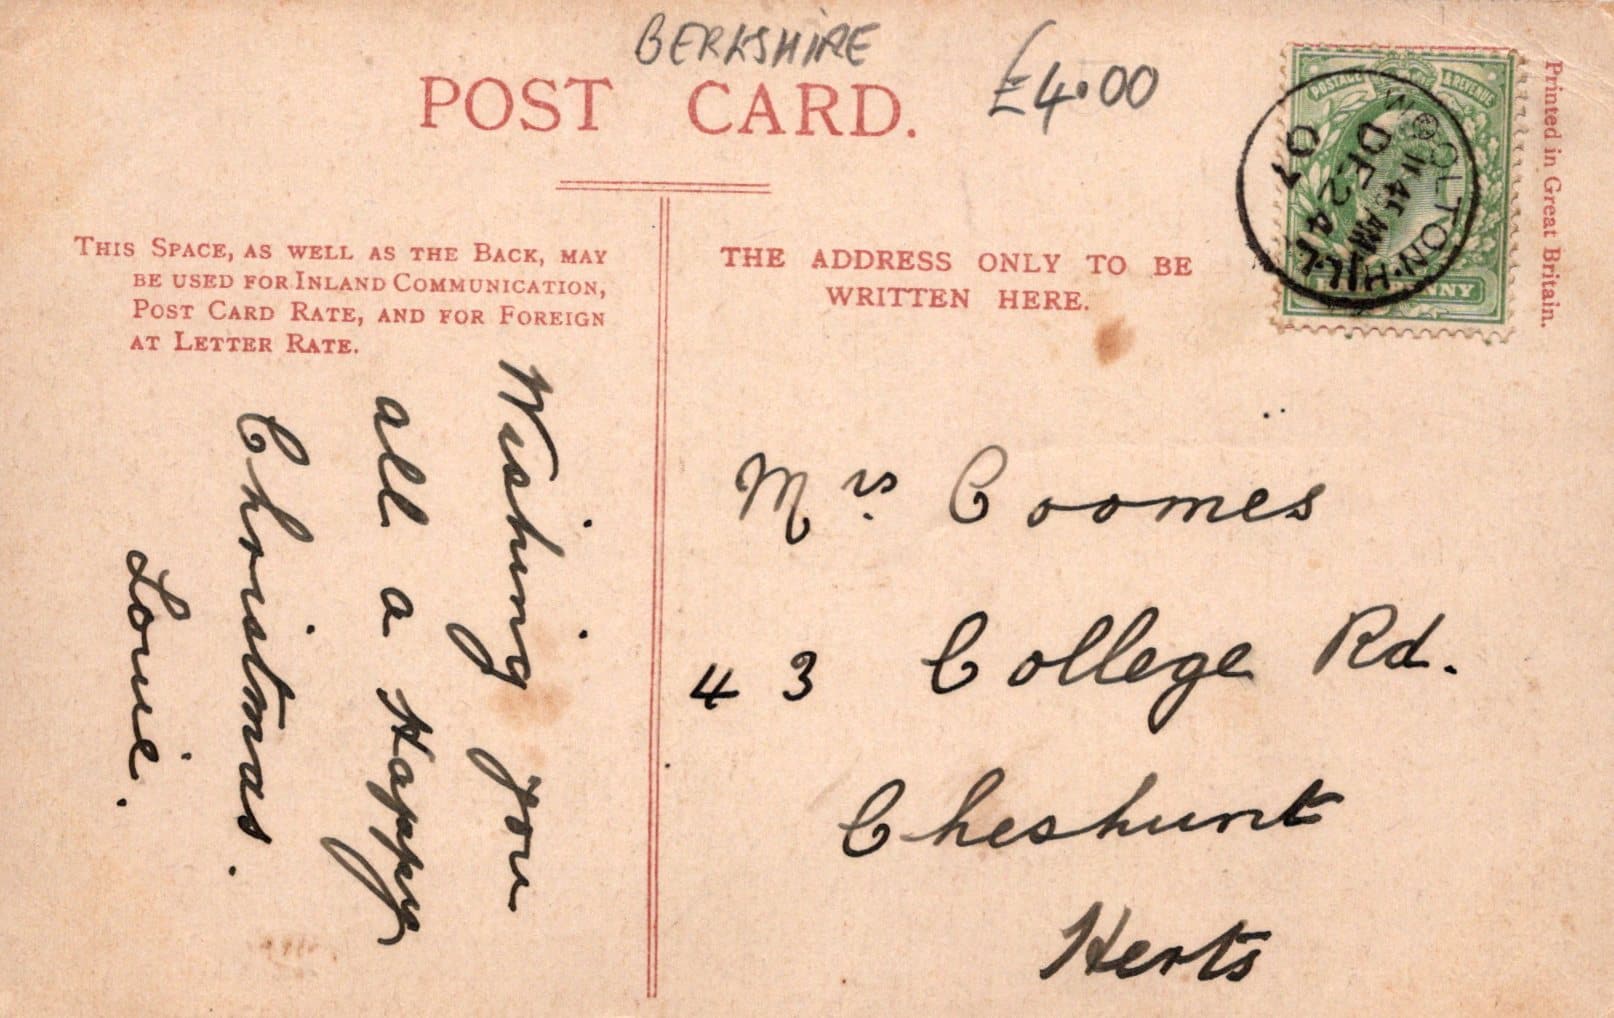 BERKSHIRE
£4.00
POST CARD.
THIS SPACE, AS WELL AS THE BACK, MAY
BE USED FOR INLAND COMMUNICATION,
POST CARD RATE, AND FOR FOREIGN
AT LETTER RATE.
THE ADDRESS ONLY TO BE
WRITTEN HERE.
POSTAGE & REVENUE
HALFPENNY
WOOLTON·HILL
11 45 AM
DE 24
07
Printed in Great Britain.
Wishing you
all a Happy
Christmas.
Louie.
Mrs. Coomes
43 College Rd.
Cheshunt
Herts